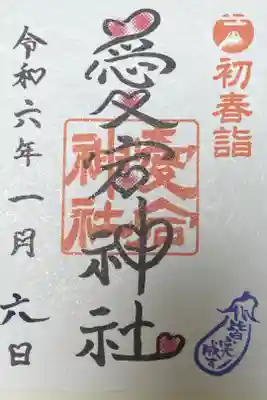 初春詣
愛宕神社
愛宕
神社
令和六年一月六日